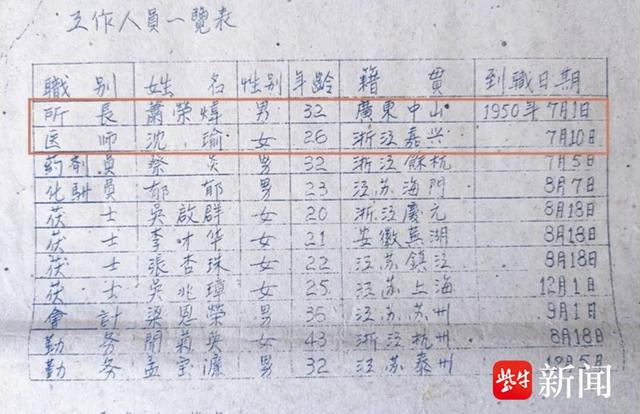 工作人員一覽表
職別 姓名 性別 年龄 籍貫 到職日期
所長 蕭榮煒 男 32 廣東中山 1950年7月1日
医师 沈瑜 女 26 浙江嘉兴 7月10日
药剂員 蔡炎 男 32 浙江餘杭 7月5日
化驗員 郁郁 男 23 江苏海門 8月7日
士 吳啟群 女 20 浙江慶元 8月18日
士 李才华 女 21 安徽蕪湖 8月18日
士 張杏珠 女 22 江苏鎮江 8月18日
士 吳兆璋 女 25 江苏上海 12月1日
會計 梁恩榮 男 36 江苏苏州 9月1日
勤务 聞氣英 女 43 浙江杭州 8月18日
勤务 孟宝濂 男 32 江苏泰州 12月5日
紫牛新闻